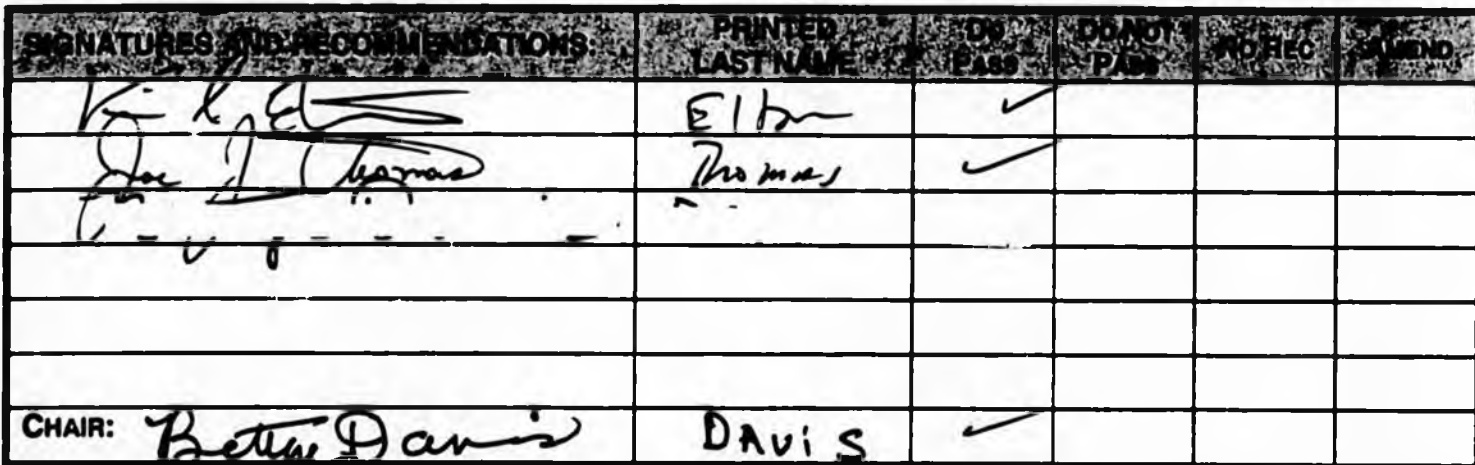 SIGNATURES AND RECOMMENDATIONS: PRINTED LAST NAME DO PASS DO NOT PASS NO REC AMEND
Kim S. Elton Elton ✓
Joe J. Thomas Thomas ✓
CHAIR: Bettye Davis DAVIS ✓